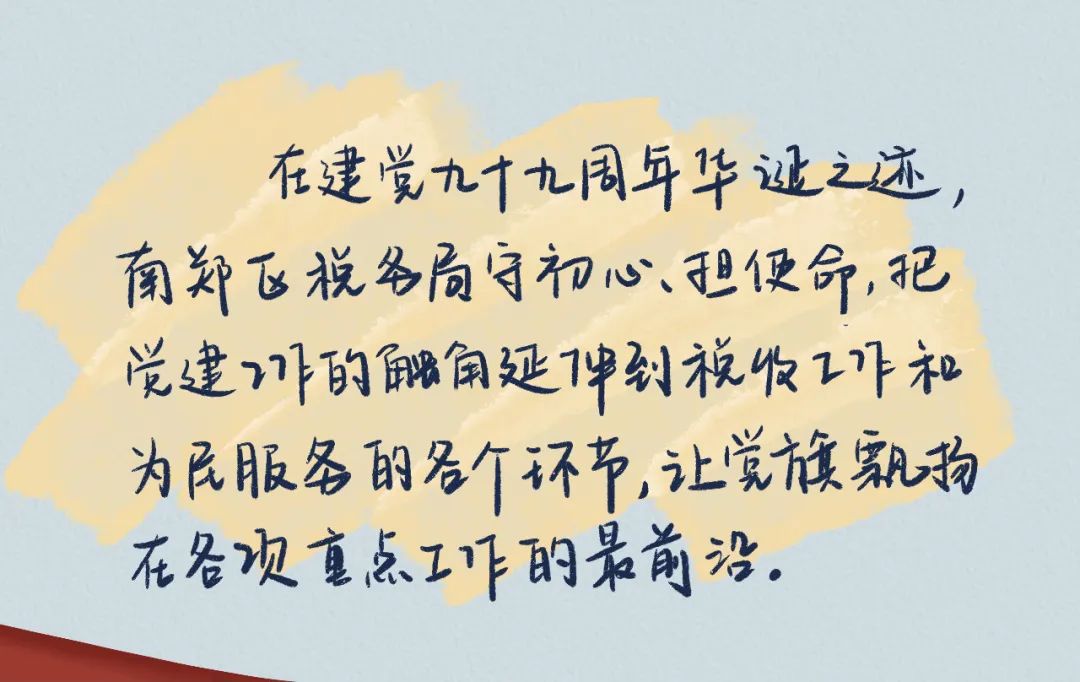 在建党九十九周年华诞之迹，
南郑区税务局守初心、担使命，把
党建工作的触角延伸到税收工作和
为民服务的各个环节，让党旗飘扬
在各项重点工作的最前沿。